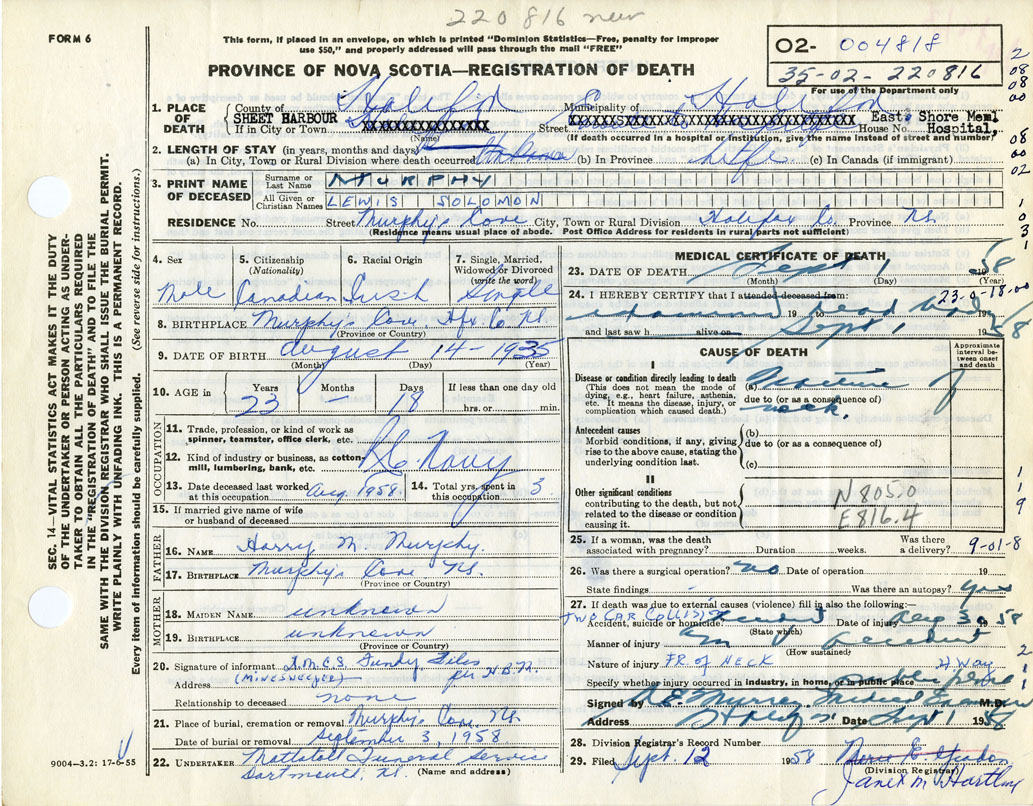 220816 new
FORM 6
This form, if placed in an envelope, on which is printed "Dominion Statistics—Free, penalty for improper
use $50," and properly addressed will pass through the mail "FREE"
O2- 004818
35-02-220816
For use of the Department only
PROVINCE OF NOVA SCOTIA—REGISTRATION OF DEATH
1. PLACE OF DEATH
County of Halifax Municipality of Halifax
SHEET HARBOUR East. Shore Meml
If in City or Town XXXXXXXXXXXXXXXX Street House No. Hospital,
(Name) (If death occurred in a hospital or institution, give the name instead of street and number)
2. LENGTH OF STAY (in years, months and days)
(a) In City, Town or Rural Division where death occurred (b) In Province Life (c) In Canada (if immigrant)
3. PRINT NAME OF DECEASED
Surname or Last Name MURPHY
All Given or Christian Names LEWIS SOLOMON
RESIDENCE No. Street Murphy's Cove City, Town or Rural Division Halifax Co. Province NS.
(Residence means usual place of abode. Post Office Address for residents in rural parts not sufficient)
4. Sex Male
5. Citizenship (Nationality) Canadian
6. Racial Origin Irish
7. Single, Married, Widowed or Divorced (write the word) Single
8. BIRTHPLACE Murphy's Cove, Hfx Co. NS.
(Province or Country)
9. DATE OF BIRTH August 14 - 1935
(Month) (Day) (Year)
10. AGE in Years 23 Months — Days 18 If less than one day old hrs. or min.
OCCUPATION
11. Trade, profession, or kind of work as spinner, teamster, office clerk, etc.
12. Kind of industry or business, as cotton-mill, lumbering, bank, etc. R.C. Navy
13. Date deceased last worked at this occupation Aug. 1958
14. Total yrs. spent in this occupation 3
15. If married give name of wife or husband of deceased
FATHER
16. NAME Harry M. Murphy.
17. BIRTHPLACE Murphy's Cove NS.
(Province or Country)
MOTHER
18. MAIDEN NAME unknown
19. BIRTHPLACE unknown
(Province or Country)
20. Signature of informant H.M.C.S. Fundy, Files
(MINESWEEPER) per
Address
Relationship to deceased none
21. Place of burial, cremation or removal Murphy's Cove, NS.
Date of burial or removal September 3, 1958
22. UNDERTAKER Mattatall Funeral Service
Dartmouth, NS. (Name and address)
9004—3.2: 17-6-55
SEC. 14—VITAL STATISTICS ACT MAKES IT THE DUTY
OF THE UNDERTAKER OR PERSON ACTING AS UNDER-
TAKER TO OBTAIN ALL THE PARTICULARS REQUIRED
IN THE "REGISTRATION OF DEATH" AND TO FILE THE
SAME WITH THE DIVISION REGISTRAR WHO SHALL ISSUE THE BURIAL PERMIT.
WRITE PLAINLY WITH UNFADING INK. THIS IS A PERMANENT RECORD.
Every item of information should be carefully supplied. (See reverse side for instructions.)
MEDICAL CERTIFICATE OF DEATH
23. DATE OF DEATH Sept 1 1958
(Month) (Day) (Year)
24. I HEREBY CERTIFY that I attended deceased from: 23-0-18-00
examined 19 to dead body
and last saw h alive on Sept 1 58
CAUSE OF DEATH
Approximate interval between onset and death
I
Disease or condition directly leading to death
(This does not mean the mode of
dying, e.g., heart failure, asthenia,
etc. It means the disease, injury, or
complication which caused death.)
(a) Fracture of
due to (or as a consequence of)
neck.
Antecedent causes
Morbid conditions, if any, giving
rise to the above cause, stating the
underlying condition last.
(b)
due to (or as a consequence of)
(c)
II
Other significant conditions
contributing to the death, but not
related to the disease or condition
causing it.
N805.0
E816.4
25. If a woman, was the death associated with pregnancy? Duration weeks. Was there a delivery? 9-01-8
26. Was there a surgical operation? no Date of operation 19
State findings Was there an autopsy? yes
27. If death was due to external causes (violence) fill in also the following:—
TWO CAR COLLISION
Accident, suicide or homicide? Accident Date of injury Aug 30 1958
(State which)
Manner of injury M V accident
(How sustained)
Nature of injury FR. OF NECK H Way
Specify whether injury occurred in industry, in home, or in public place public place
Signed by A.E. Murray, Medical Examiner M.D.
Address Halifax Date Sept 1 1958
28. Division Registrar's Record Number
29. Filed Sept. 12 1958
(Division Registrar)
Janet M Hartling
2
08
08
00
08
00
02
1
0
3
1
1
1
9
2
1
1